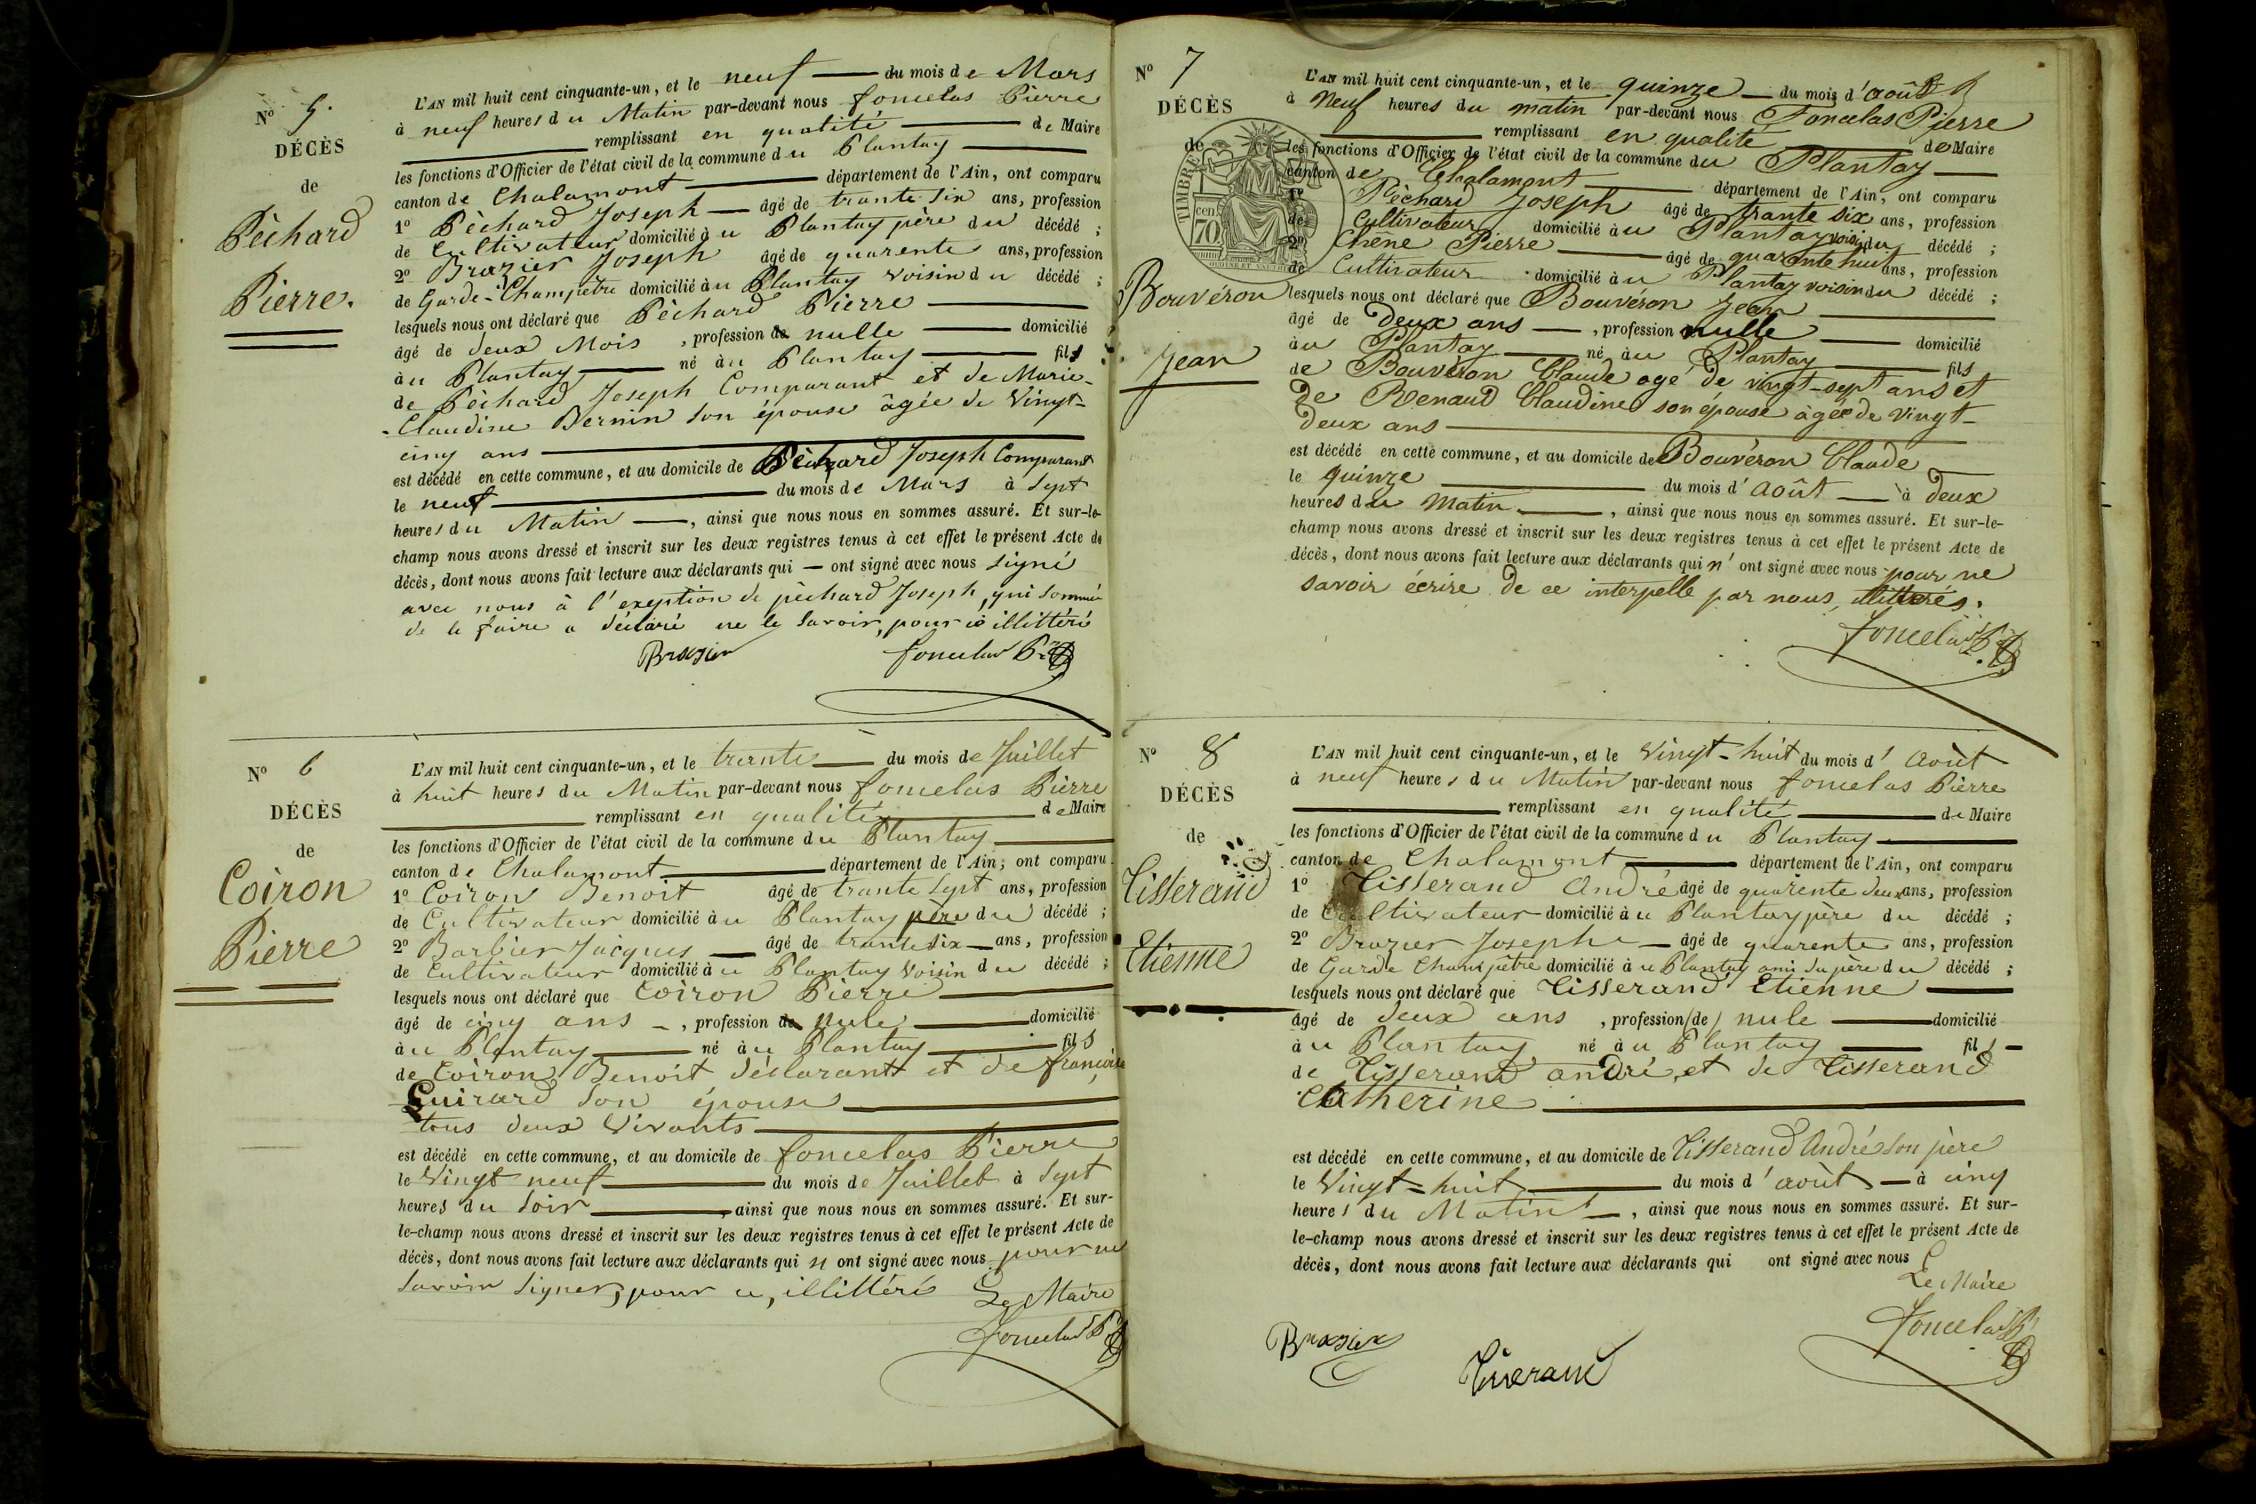 N° 5.
DÉCÈS
de
Pèchard
Pierre.
L'AN mil huit cent cinquante-un, et le neuf du mois de Mars
à neuf heures du Matin par-devant nous foncelas Pierre
remplissant en qualité de Maire
les fonctions d'Officier de l'état civil de la commune du Plantay
canton de Chalamont département de l'Ain, ont comparu
1° Pèchard Joseph âgé de trante six ans, profession
de Cultivateur domicilié au Plantay père du décédé ;
2° Brazier Joseph âgé de quarente ans, profession
de Garde-Champetre domicilié au Plantay Voisin du décédé ;
lesquels nous ont déclaré que Pèchard Pierre
âgé de deux Mois , profession de nulle domicilié
au Plantay né au Plantay fils
de Pèchard Joseph Comparant et de Marie-
Claudine Bernin son épouse âgée de Vingt-
cinq ans
est décédé en cette commune, et au domicile de Pèchard Joseph Comparant
le neuf du mois de Mars à Sept
heures du Matin , ainsi que nous nous en sommes assuré. Et sur-le-
champ nous avons dressé et inscrit sur les deux registres tenus à cet effet le présent Acte de
décès, dont nous avons fait lecture aux déclarants qui — ont signé avec nous signé
avec nous à l'exeption de pèchard Joseph, qui sommé
de le faire a déclaré ne le savoir, pour illittéré
Brazier foncelas Pre
N° 6
DÉCÈS
de
Coiron
Pierre
L'AN mil huit cent cinquante-un, et le trente du mois de Juillet
à huit heures du Matin par-devant nous foncelas Pierre
remplissant en qualité de Maire
les fonctions d'Officier de l'état civil de la commune du Plantay
canton de Chalamont département de l'Ain; ont comparu
1° Coiron Benoit âgé de trante Sept ans, profession
de Cultivateur domicilié au Plantay père du décédé ;
2° Barbier Jacques âgé de trante six ans, profession
de Cultivateur domicilié au Plantay Voisin du décédé ;
lesquels nous ont déclaré que Coiron Pierre
âgé de cinq ans , profession de nule domicilié
au Plantay né au Plantay fils
de Coiron Benoit déclarant et de françoise
Guirard son épouse
tous deux Vivants
est décédé en cette commune, et au domicile de foncelas Pierre
le Vingt neuf du mois de Juillet à Sept
heures du Soir , ainsi que nous nous en sommes assuré. Et sur-
le-champ nous avons dressé et inscrit sur les deux registres tenus à cet effet le présent Acte de
décès, dont nous avons fait lecture aux déclarants qui n ont signé avec nous pour ne
savoir signer, pour ce, illittéré Le Maire
foncelas Pre
N° 7
DÉCÈS
de
TIMBRE
70
Bouvéron
Jean
L'AN mil huit cent cinquante-un, et le quinze du mois d'août
à Neuf heures du matin par-devant nous Foncelas Pierre
remplissant en qualité de Maire
les fonctions d'Officier de l'état civil de la commune du Plantay
canton de Chalamont département de l'Ain, ont comparu
1° Pèchard Joseph âgé de trante six ans, profession
de Cultivateur domicilié au Plantay voisin du décédé ;
2° Chêne Pierre âgé de quarante huit ans, profession
de Cultivateur domicilié au Plantay voisin du décédé ;
lesquels nous ont déclaré que Bouvéron Jean
âgé de deux ans , profession nulle domicilié
au Plantay né au Plantay fils
de Bouvéron Claude agé de vingt-sept ans et
de Renaud Claudine son épouse âgée de vingt-
deux ans
est décédé en cette commune, et au domicile de Bouvéron Claude
le quinze du mois d'août à deux
heures du Matin , ainsi que nous nous en sommes assuré. Et sur-le-
champ nous avons dressé et inscrit sur les deux registres tenus à cet effet le présent Acte de
décès, dont nous avons fait lecture aux déclarants qui n'ont signé avec nous pour ne
savoir écrire de ce interpellé par nous, illitterés.
foncelas Pre
N° 8
DÉCÈS
de
Tisserand
Etienne
L'AN mil huit cent cinquante-un, et le Vingt-huit du mois d'Août
à neuf heures du Matin par-devant nous foncelas Pierre
remplissant en qualité de Maire
les fonctions d'Officier de l'état civil de la commune du Plantay
canton de Chalamont département de l'Ain, ont comparu
1° Tisserand André âgé de quarente deux ans, profession
de Cultivateur domicilié au Plantay père du décédé ;
2° Brazier Josephe âgé de quarente ans, profession
de Garde Champêtre domicilié au Plantay ami du père du décédé ;
lesquels nous ont déclaré que Tisserand Etienne
âgé de deux ans , profession (de) nule domicilié
au Plantay né au Plantay fils
de Tisserand andré, et de Tisserand
Catherine
est décédé en cette commune, et au domicile de Tisserand André son père
le Vingt-huit du mois d'août à cinq
heures du Matin , ainsi que nous nous en sommes assuré. Et sur-
le-champ nous avons dressé et inscrit sur les deux registres tenus à cet effet le présent Acte de
décès, dont nous avons fait lecture aux déclarants qui ont signé avec nous
Le Maire
foncelas Pre
Brazier
Tiserand